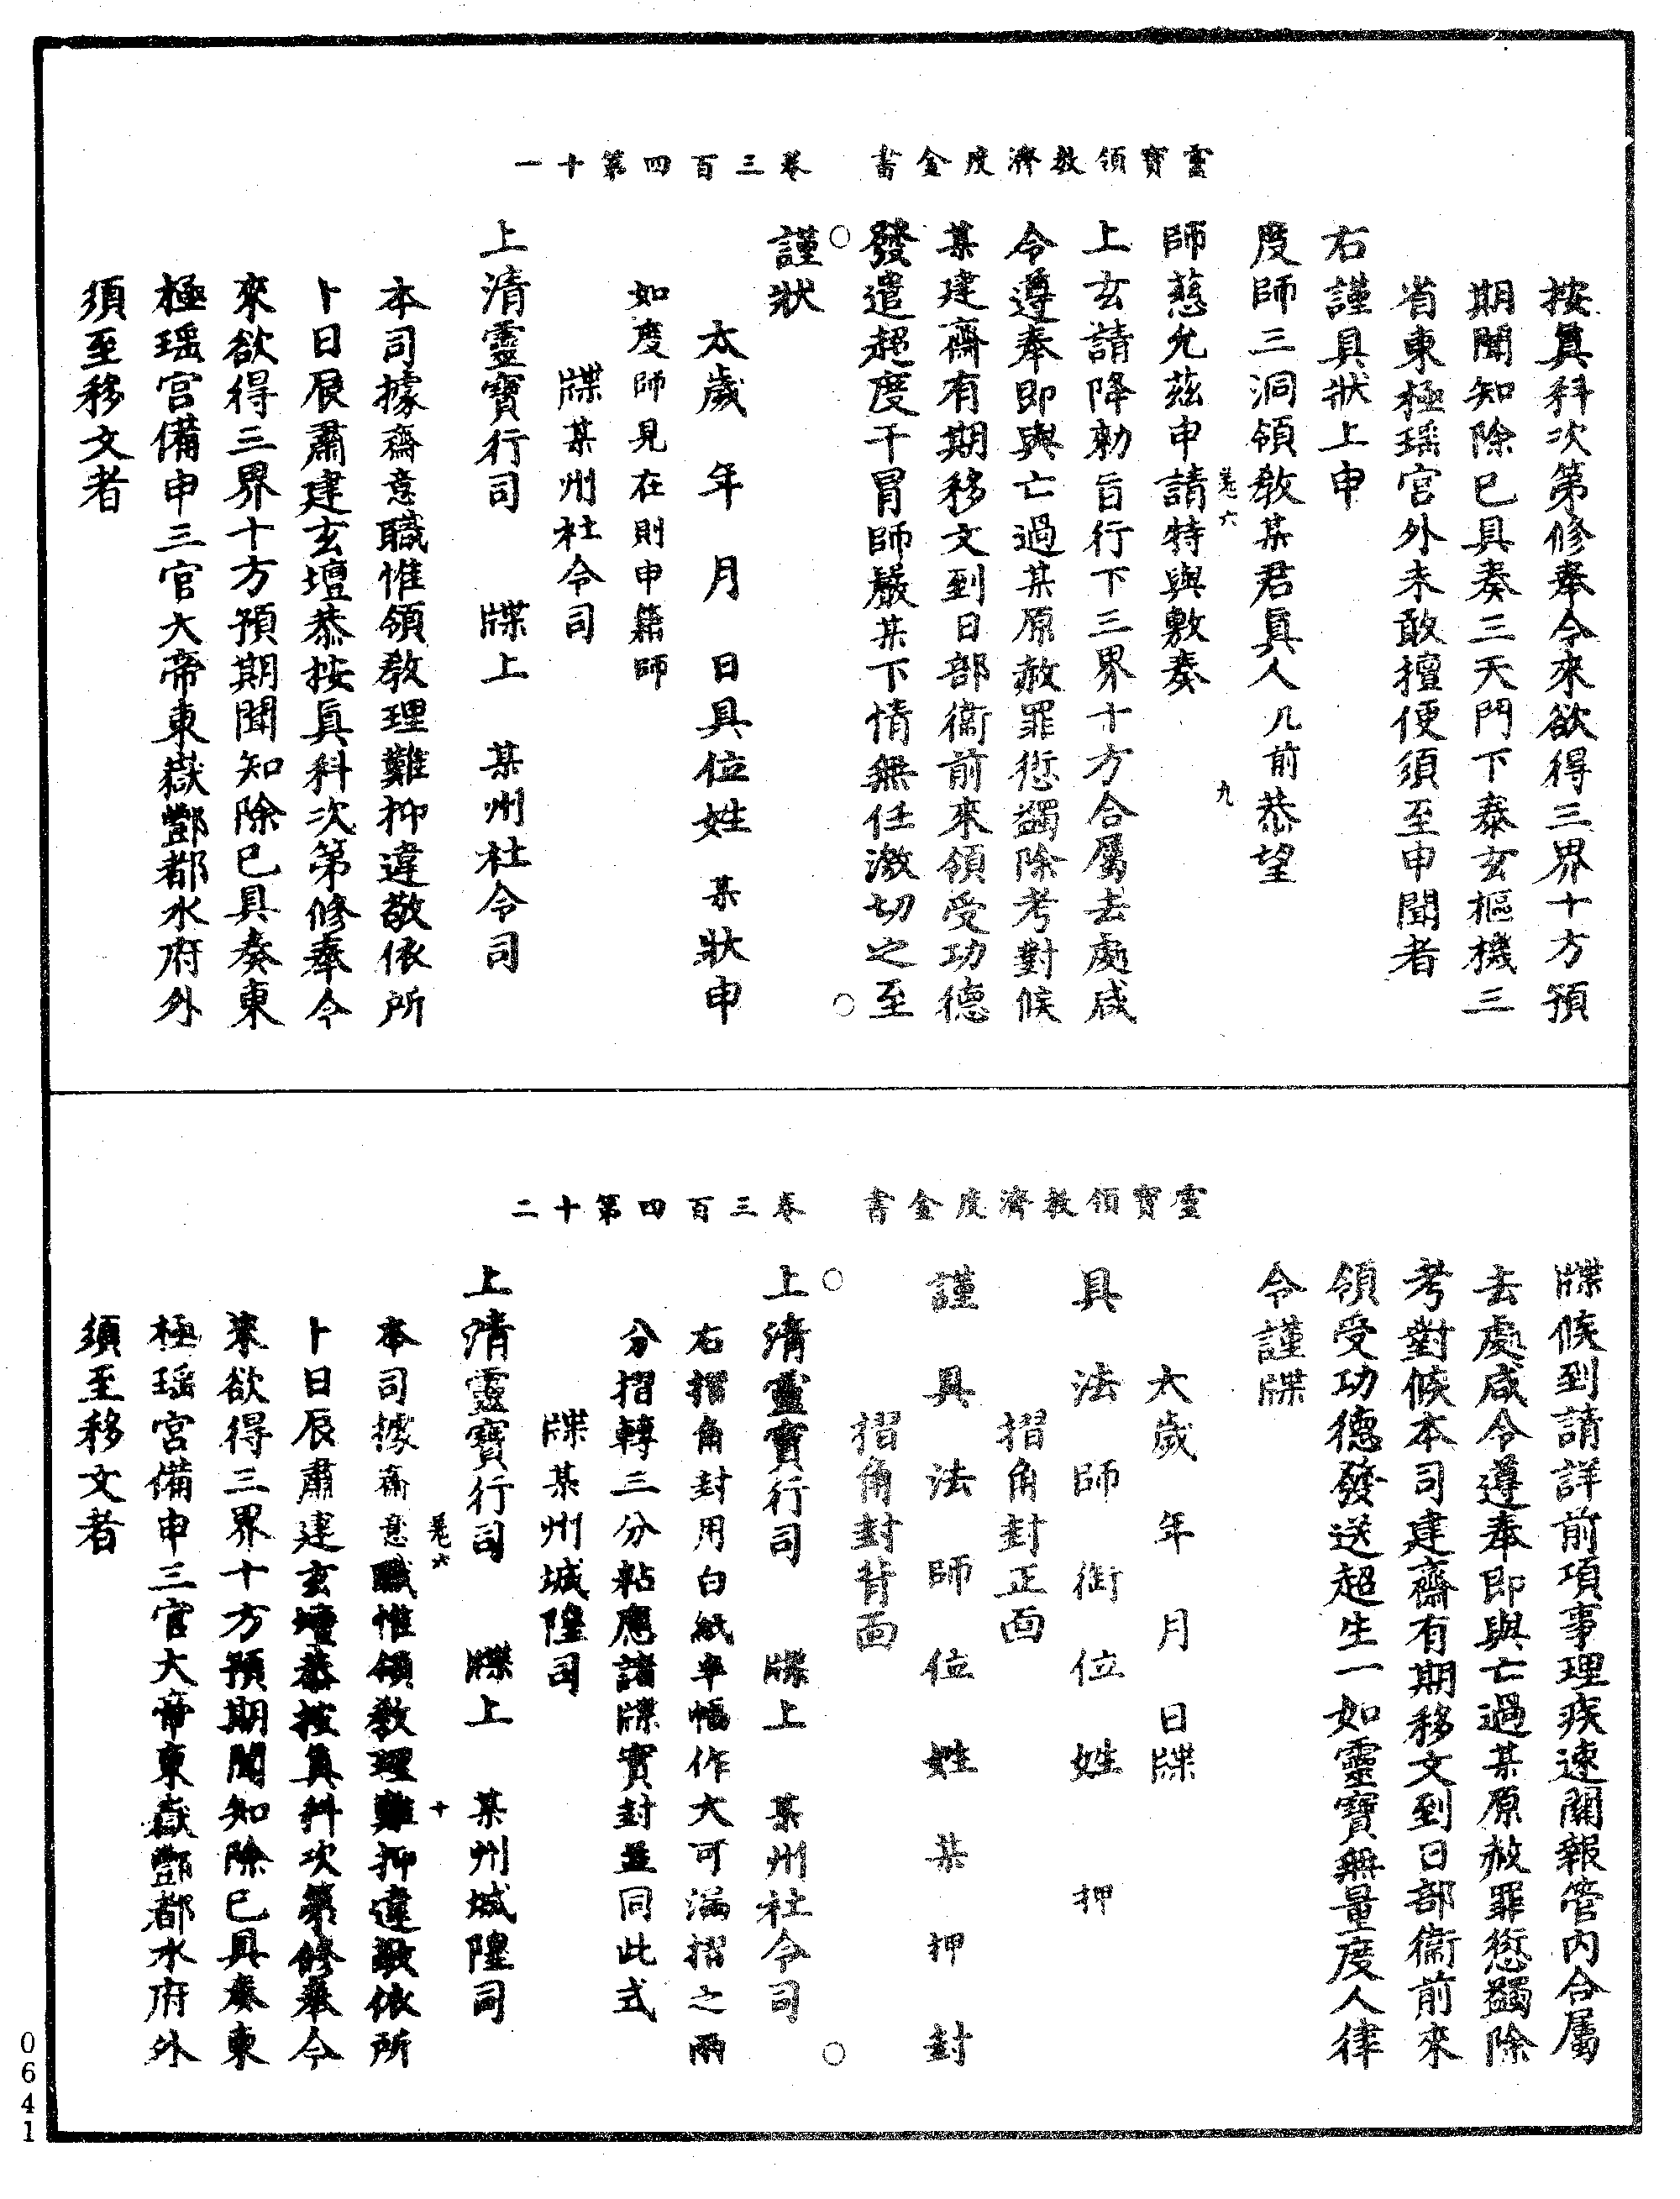 靈寶領教濟度金書　卷三百四第十一
按真科次第修奉令來欲得三界十方預
期聞知除已具奏三天門下泰玄樞機三
省東極瑶宮外未敢擅便須至申聞者
右謹具狀上申
度師三洞領教某君真人几前恭望
卷六　九
師慈允茲申請特與敷奏
上玄請降勑旨行下三界十方合屬去處咸
令遵奉即與亡過某原赦罪愆蠲除考對候
某建齋有期移文到日部衞前來領受功德
發遣超度干冒師嚴某下情無任激切之至
○　○
謹狀
太歲　年　月　日具位姓　某狀申
如度師見在則申籍師
牒某州社令司
上清靈寶行司　牒上　某州社令司
本司據齋意職惟領教理難抑違敬依所
卜日辰肅建玄壇恭按真科次第修奉令
來欲得三界十方預期聞知除已具奏東
極瑶宮備申三官大帝東嶽酆都水府外
須至移文者
靈寶領教濟度金書　卷三百四第十二
牒候到請詳前項事理疾速關報管內合屬
去處咸令遵奉即與亡過某原赦罪愆蠲除
考對候本司建齋有期移文到日部衞前來
領受功德發送超生一如靈寶無量度人律
令謹牒
太歲　年　月　日牒
具法師銜位姓　押
摺角封正面
謹具法師位姓某押封
摺角封背面
○　○
上清靈寶行司　牒上　某州社令司
右摺角封用白紙半幅作大可漏摺之兩
分摺轉三分粘應諸牒實封並同此式
牒某州城隍司
上清靈寶行司　牒上　某州城隍司
卷六　十
本司據齋意職惟領教理難抑違敬依所
卜日辰肅建玄壇恭按真科次第修奉令
來欲得三界十方預期聞知除已具奏東
極瑶宮備申三官大帝東嶽酆都水府外
須至移文者
0641